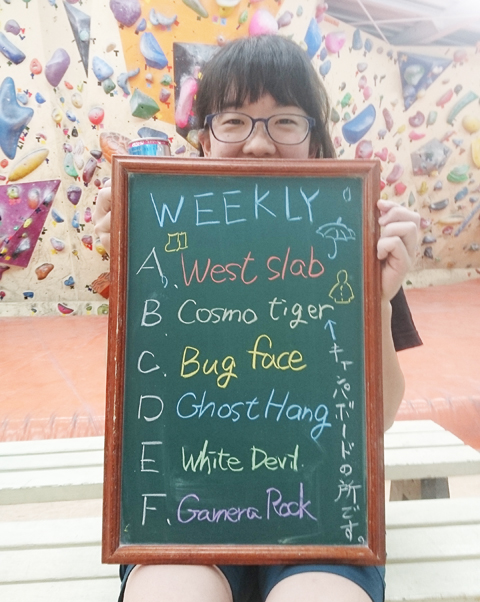 WEEKLY
A. West slab
B Cosmo tiger
C. Bug face
D Ghost Hang
E White Devil
F. Gamera Rock
↑キャンパボードの所です。